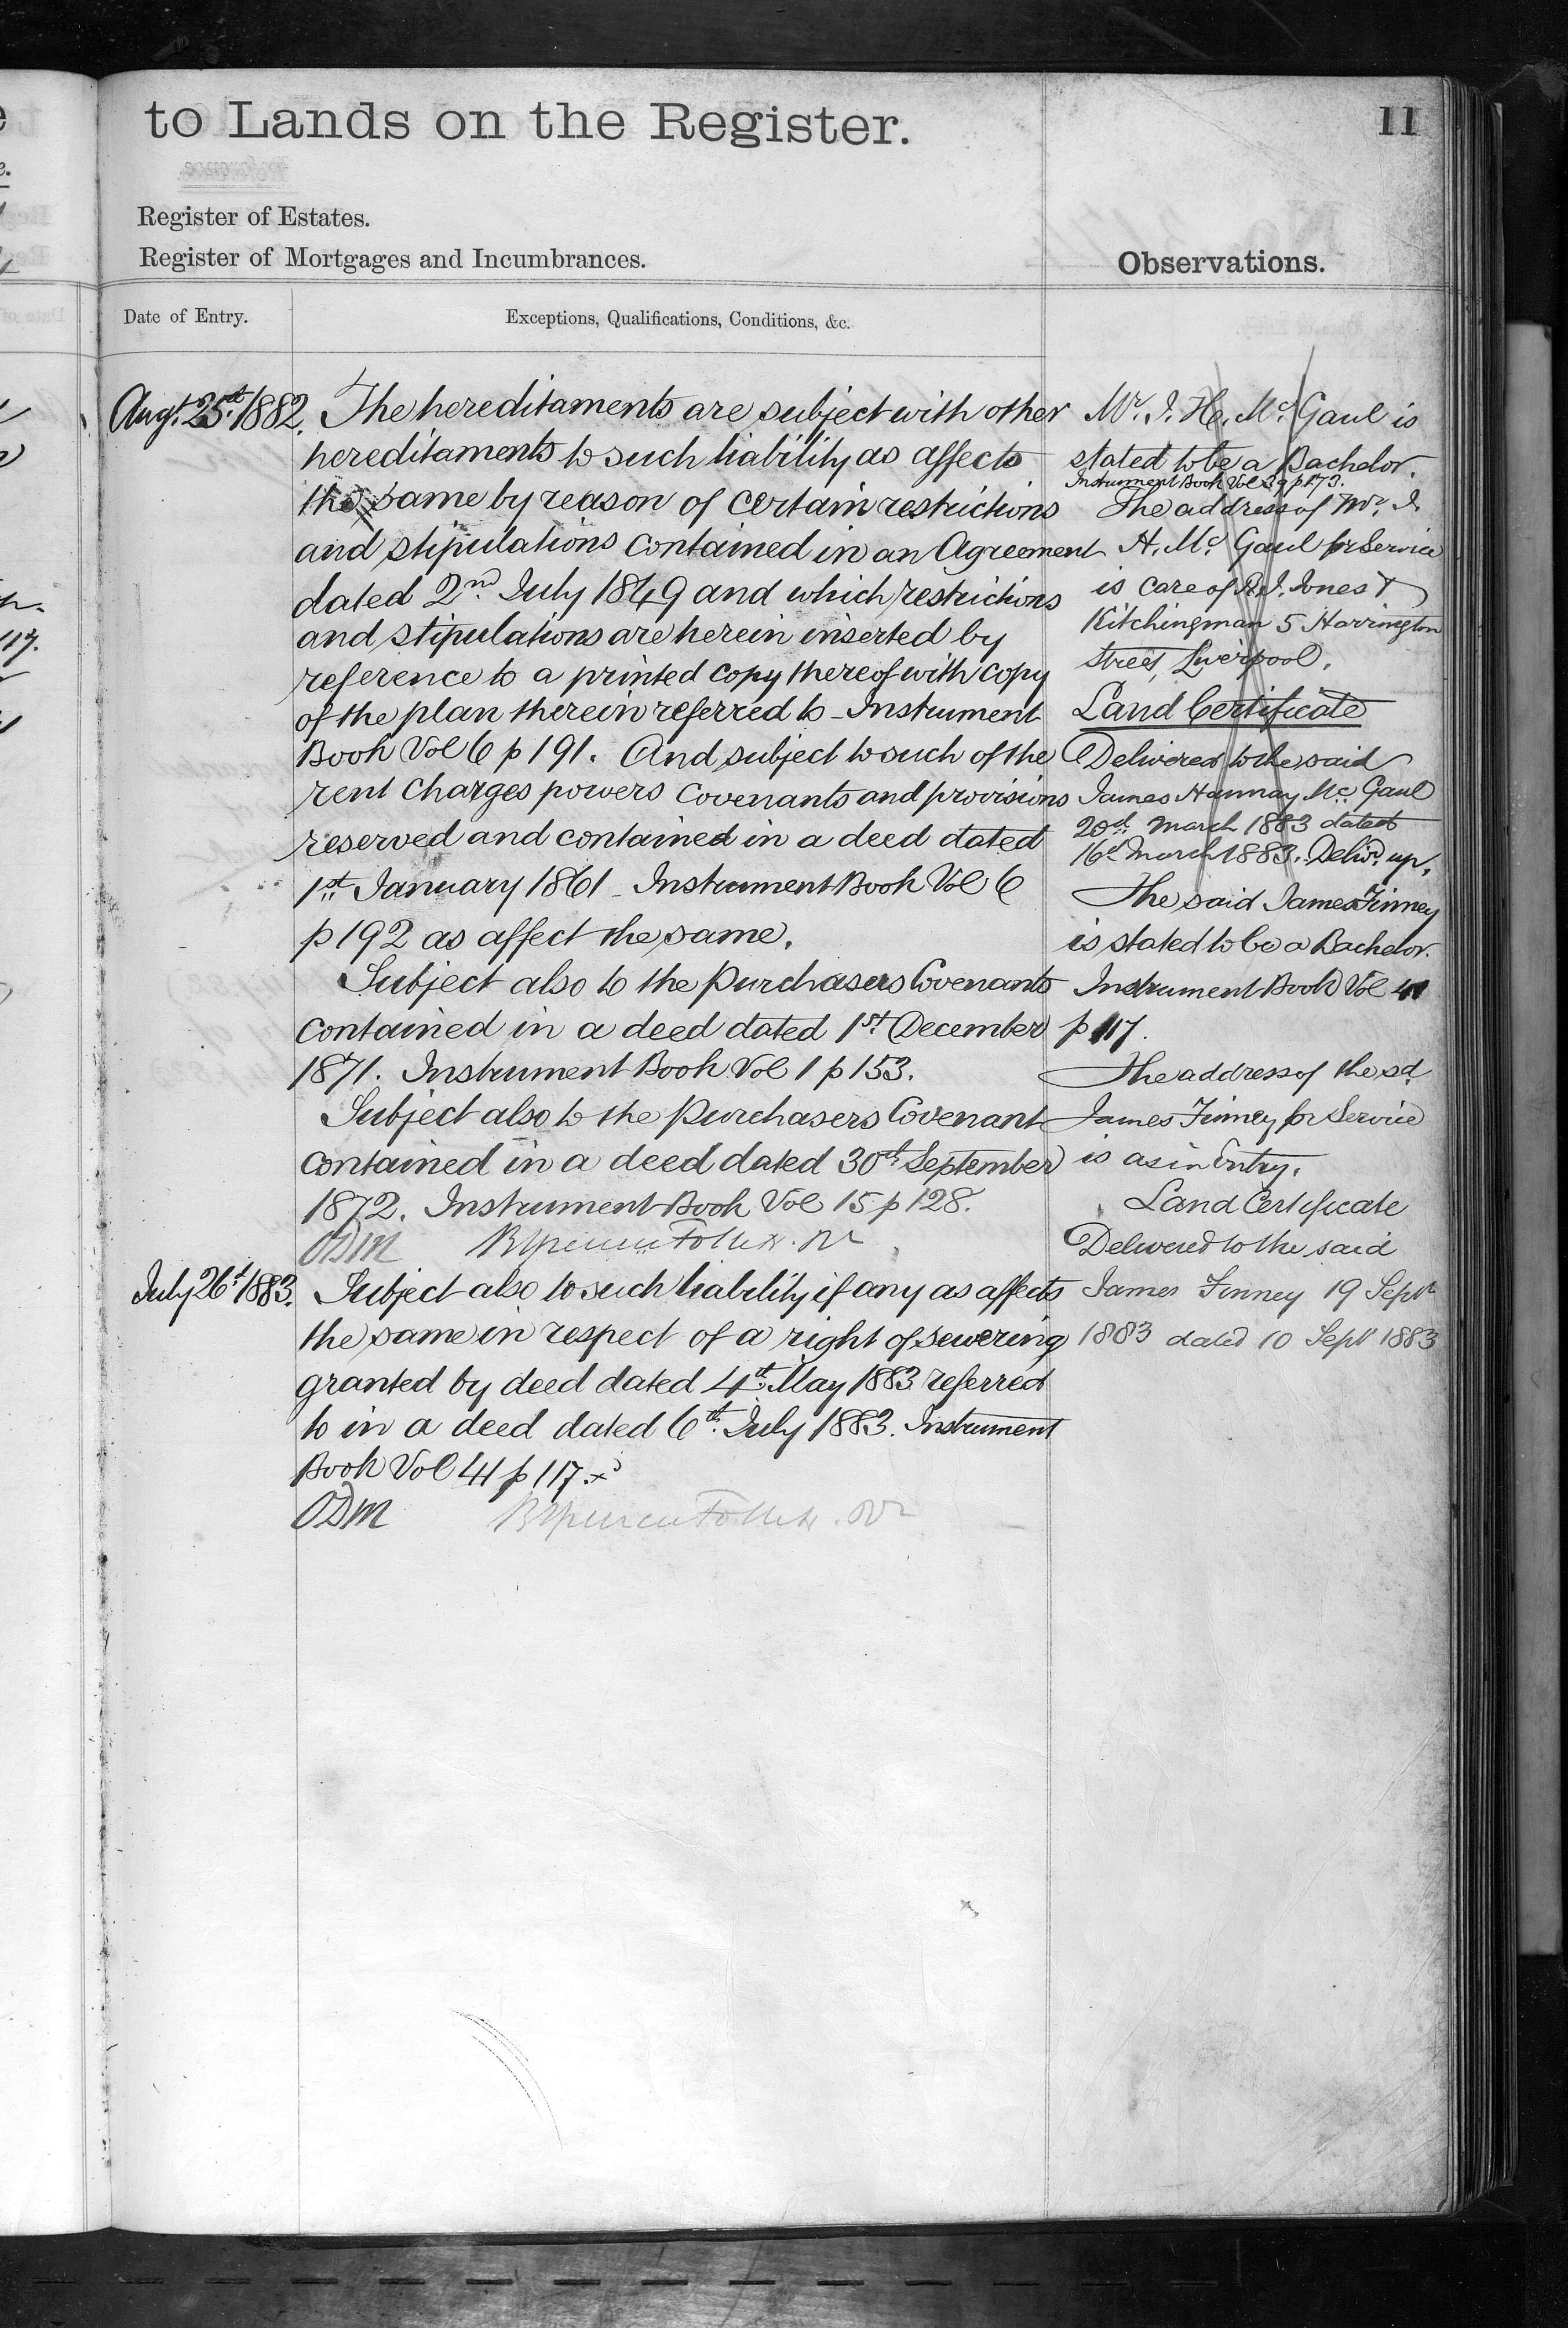 to Lands on the Register.
11
Register of Estates.
Register of Mortgages and Incumbrances.
Observations.
Date of Entry.
Exceptions, Qualifications, Conditions, &c.
Augt. 25th 1882.
The hereditaments are subject with other
hereditaments to such liability as affects
the same by reason of certain restrictions
and stipulations contained in an Agreement
dated 2nd July 1849 and which restrictions
and stipulations are herein inserted by
reference to a printed copy thereof with copy
of the plan therein referred to - Instrument
Book Vol 6 p 191. And subject to such of the
rent charges powers covenants and provisions
reserved and contained in a deed dated
1st January 1861 - Instrument Book Vol 6
p 192 as affect the same.
Subject also to the purchasers Covenants
contained in a deed dated 1st December
1871. Instrument Book Vol 1 p 153.
Subject also to the purchasers Covenant
contained in a deed dated 30th September
1872. Instrument Book Vol 15 p 128.
ODM
July 26th 1883.
Subject also to such liability if any as affects
the same in respect of a right of sewering
granted by deed dated 4th May 1883 referred
to in a deed dated 6th July 1883. Instrument
Book Vol 41 p 117.
ODM
Mr. J. H. Mc Gaul is
stated to be a Bachelor.
Instrument Book Vol 39 p 173.
The address of Mr. J.
H. Mc Gaul for Service
is care of R. J. Jones &
Kitchingman 5 Harrington
Street, Liverpool.
Land Certificate
Delivered to the said
James Hannay Mc Gaul
20th March 1883 dated
16th March 1883. Delivd. up.
The said James Finney
is stated to be a Bachelor.
Instrument Book Vol 41
p 117.
The address of the sd.
James Finney for Service
is as in Entry.
Land Certificate
Delivered to the said
James Finney 19 Septr
1883 dated 10 Sept 1883